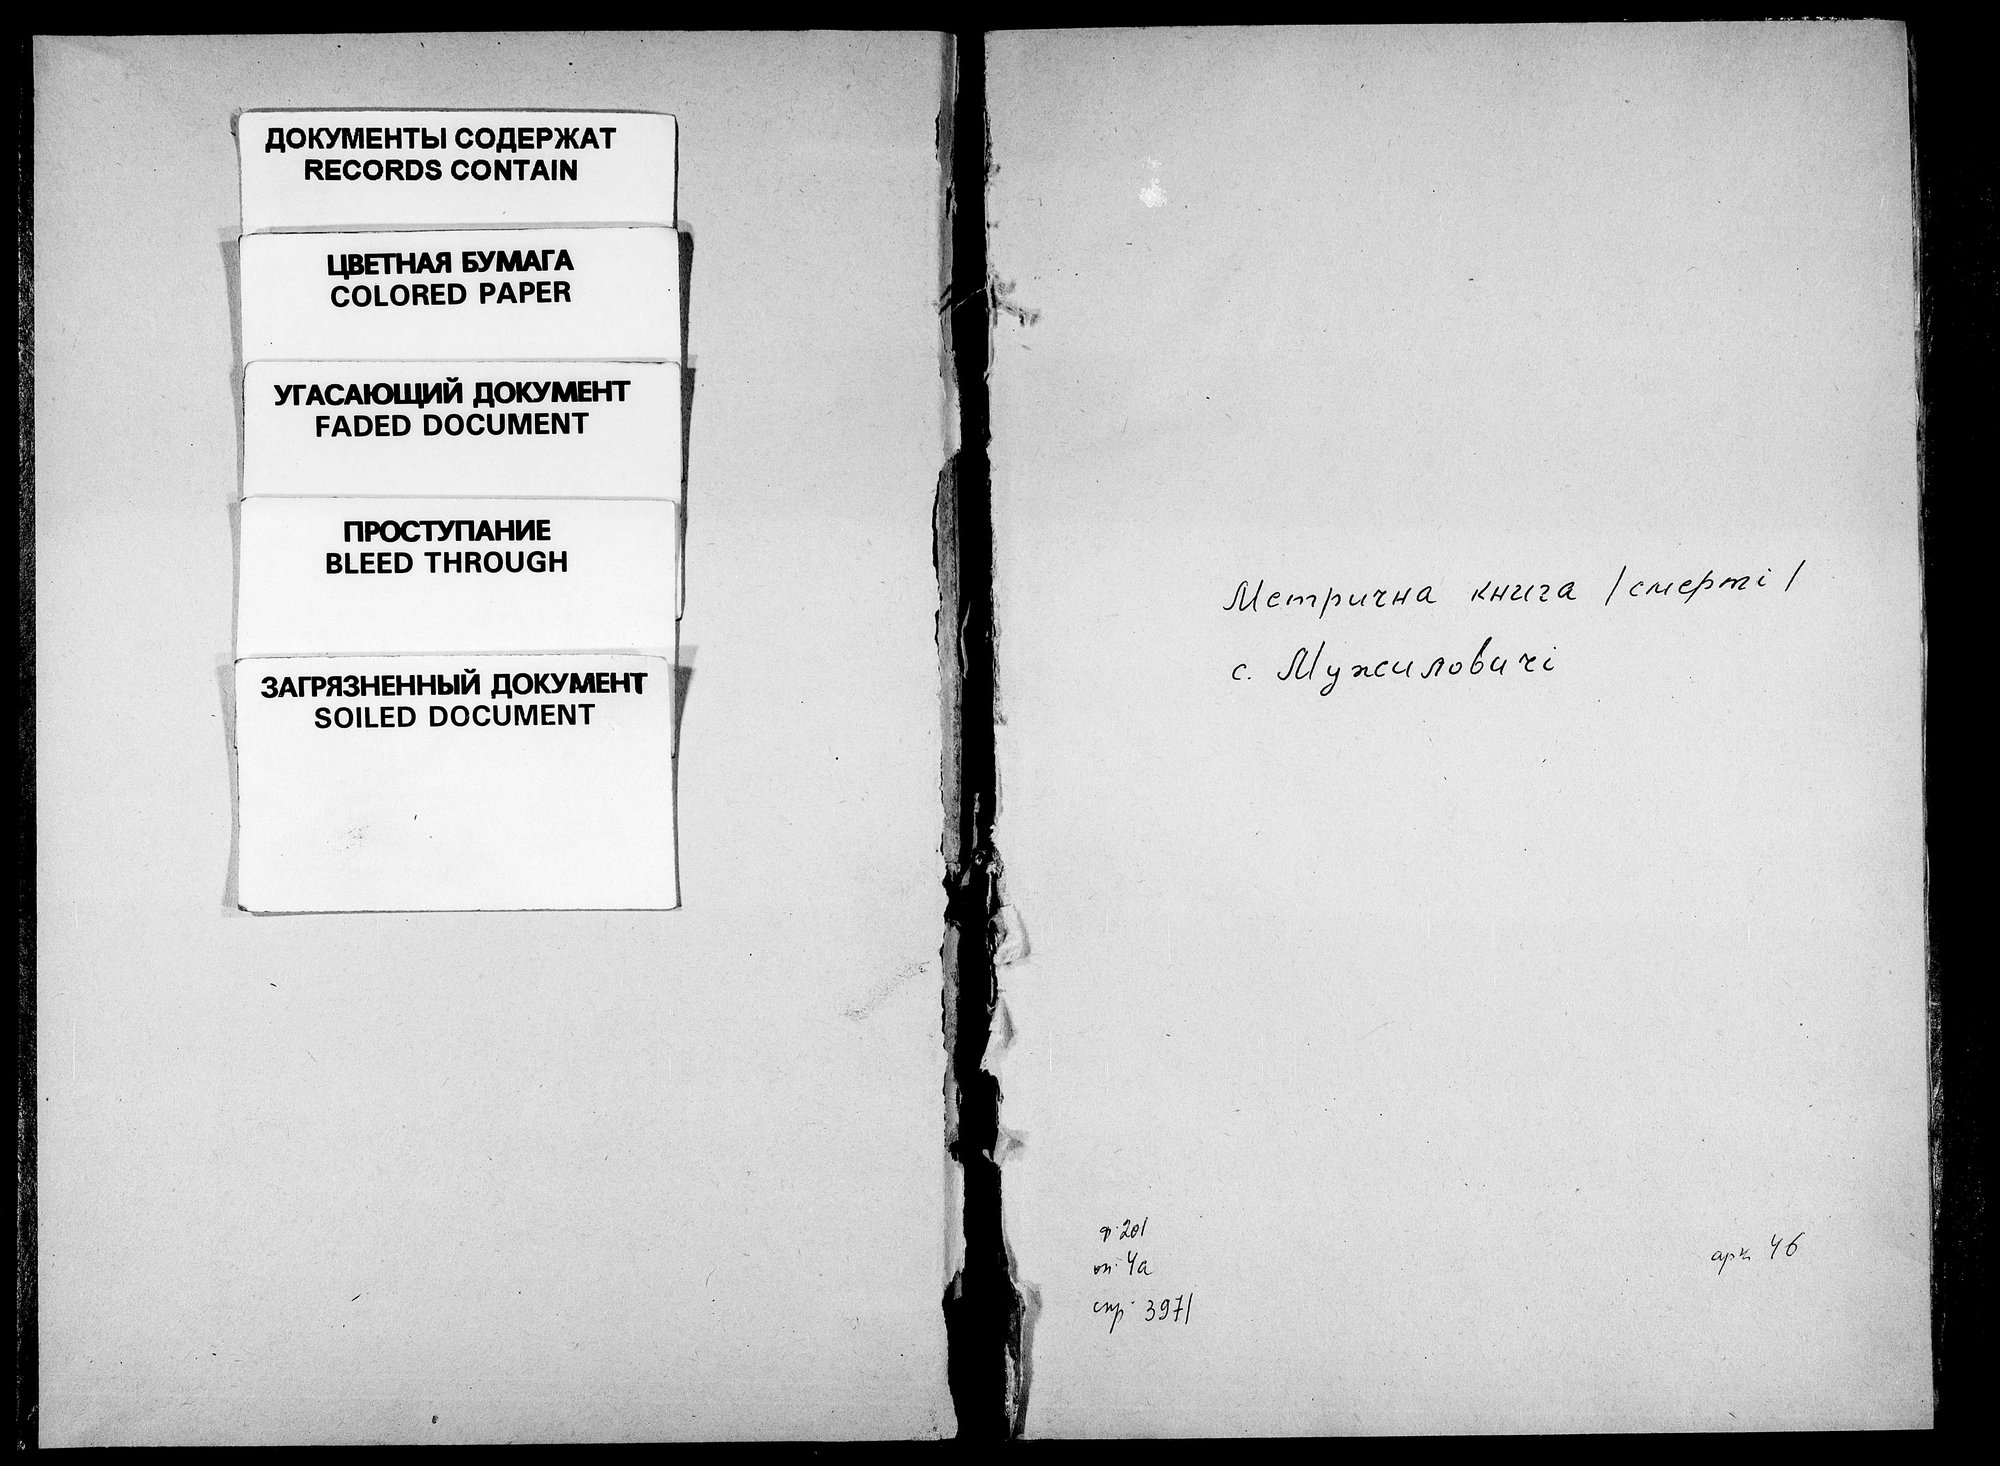 ДОКУМЕНТЫ СОДЕРЖАТ
RECORDS CONTAIN
ЦВЕТНАЯ БУМАГА
COLORED PAPER
УГАСАЮЩИЙ ДОКУМЕНТ
FADED DOCUMENT
ПРОСТУПАНИЕ
BLEED THROUGH
ЗАГРЯЗНЕННЫЙ ДОКУМЕНТ
SOILED DOCUMENT
Метрична книга /смерті/
с. Мужиловичі
ф. 201
оп. 4а
спр. 3971
арк 46